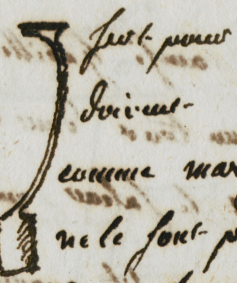 font pour
doivent
comme mar
ne le font p